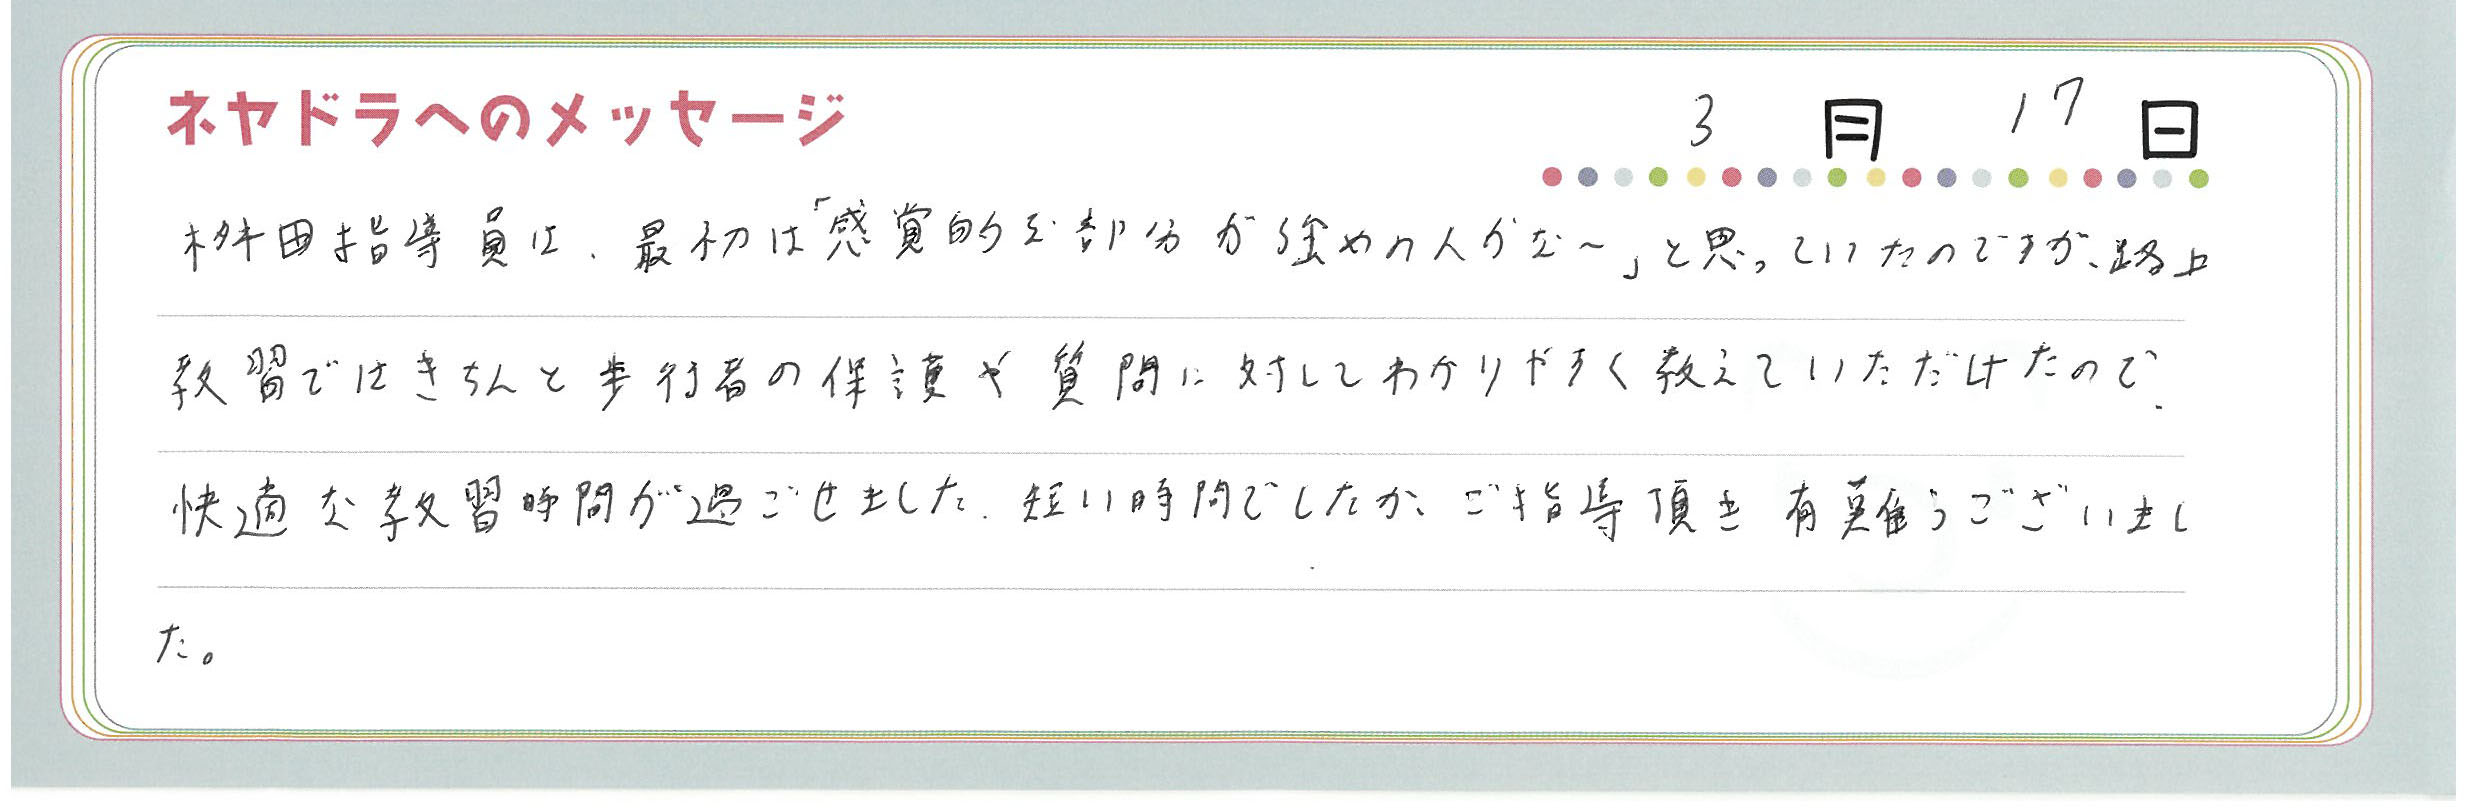 ネヤドラへのメッセージ
3月17日
桝田指導員は、最初は「感覚的な部分が強めの人かな〜」と思っていたのですが、路上
教習ではきちんと歩行者の保護や質問に対してわかりやすく教えていただけたので、
快適な教習時間が過ごせました。短い時間でしたが、ご指導頂き有難うございまし
た。